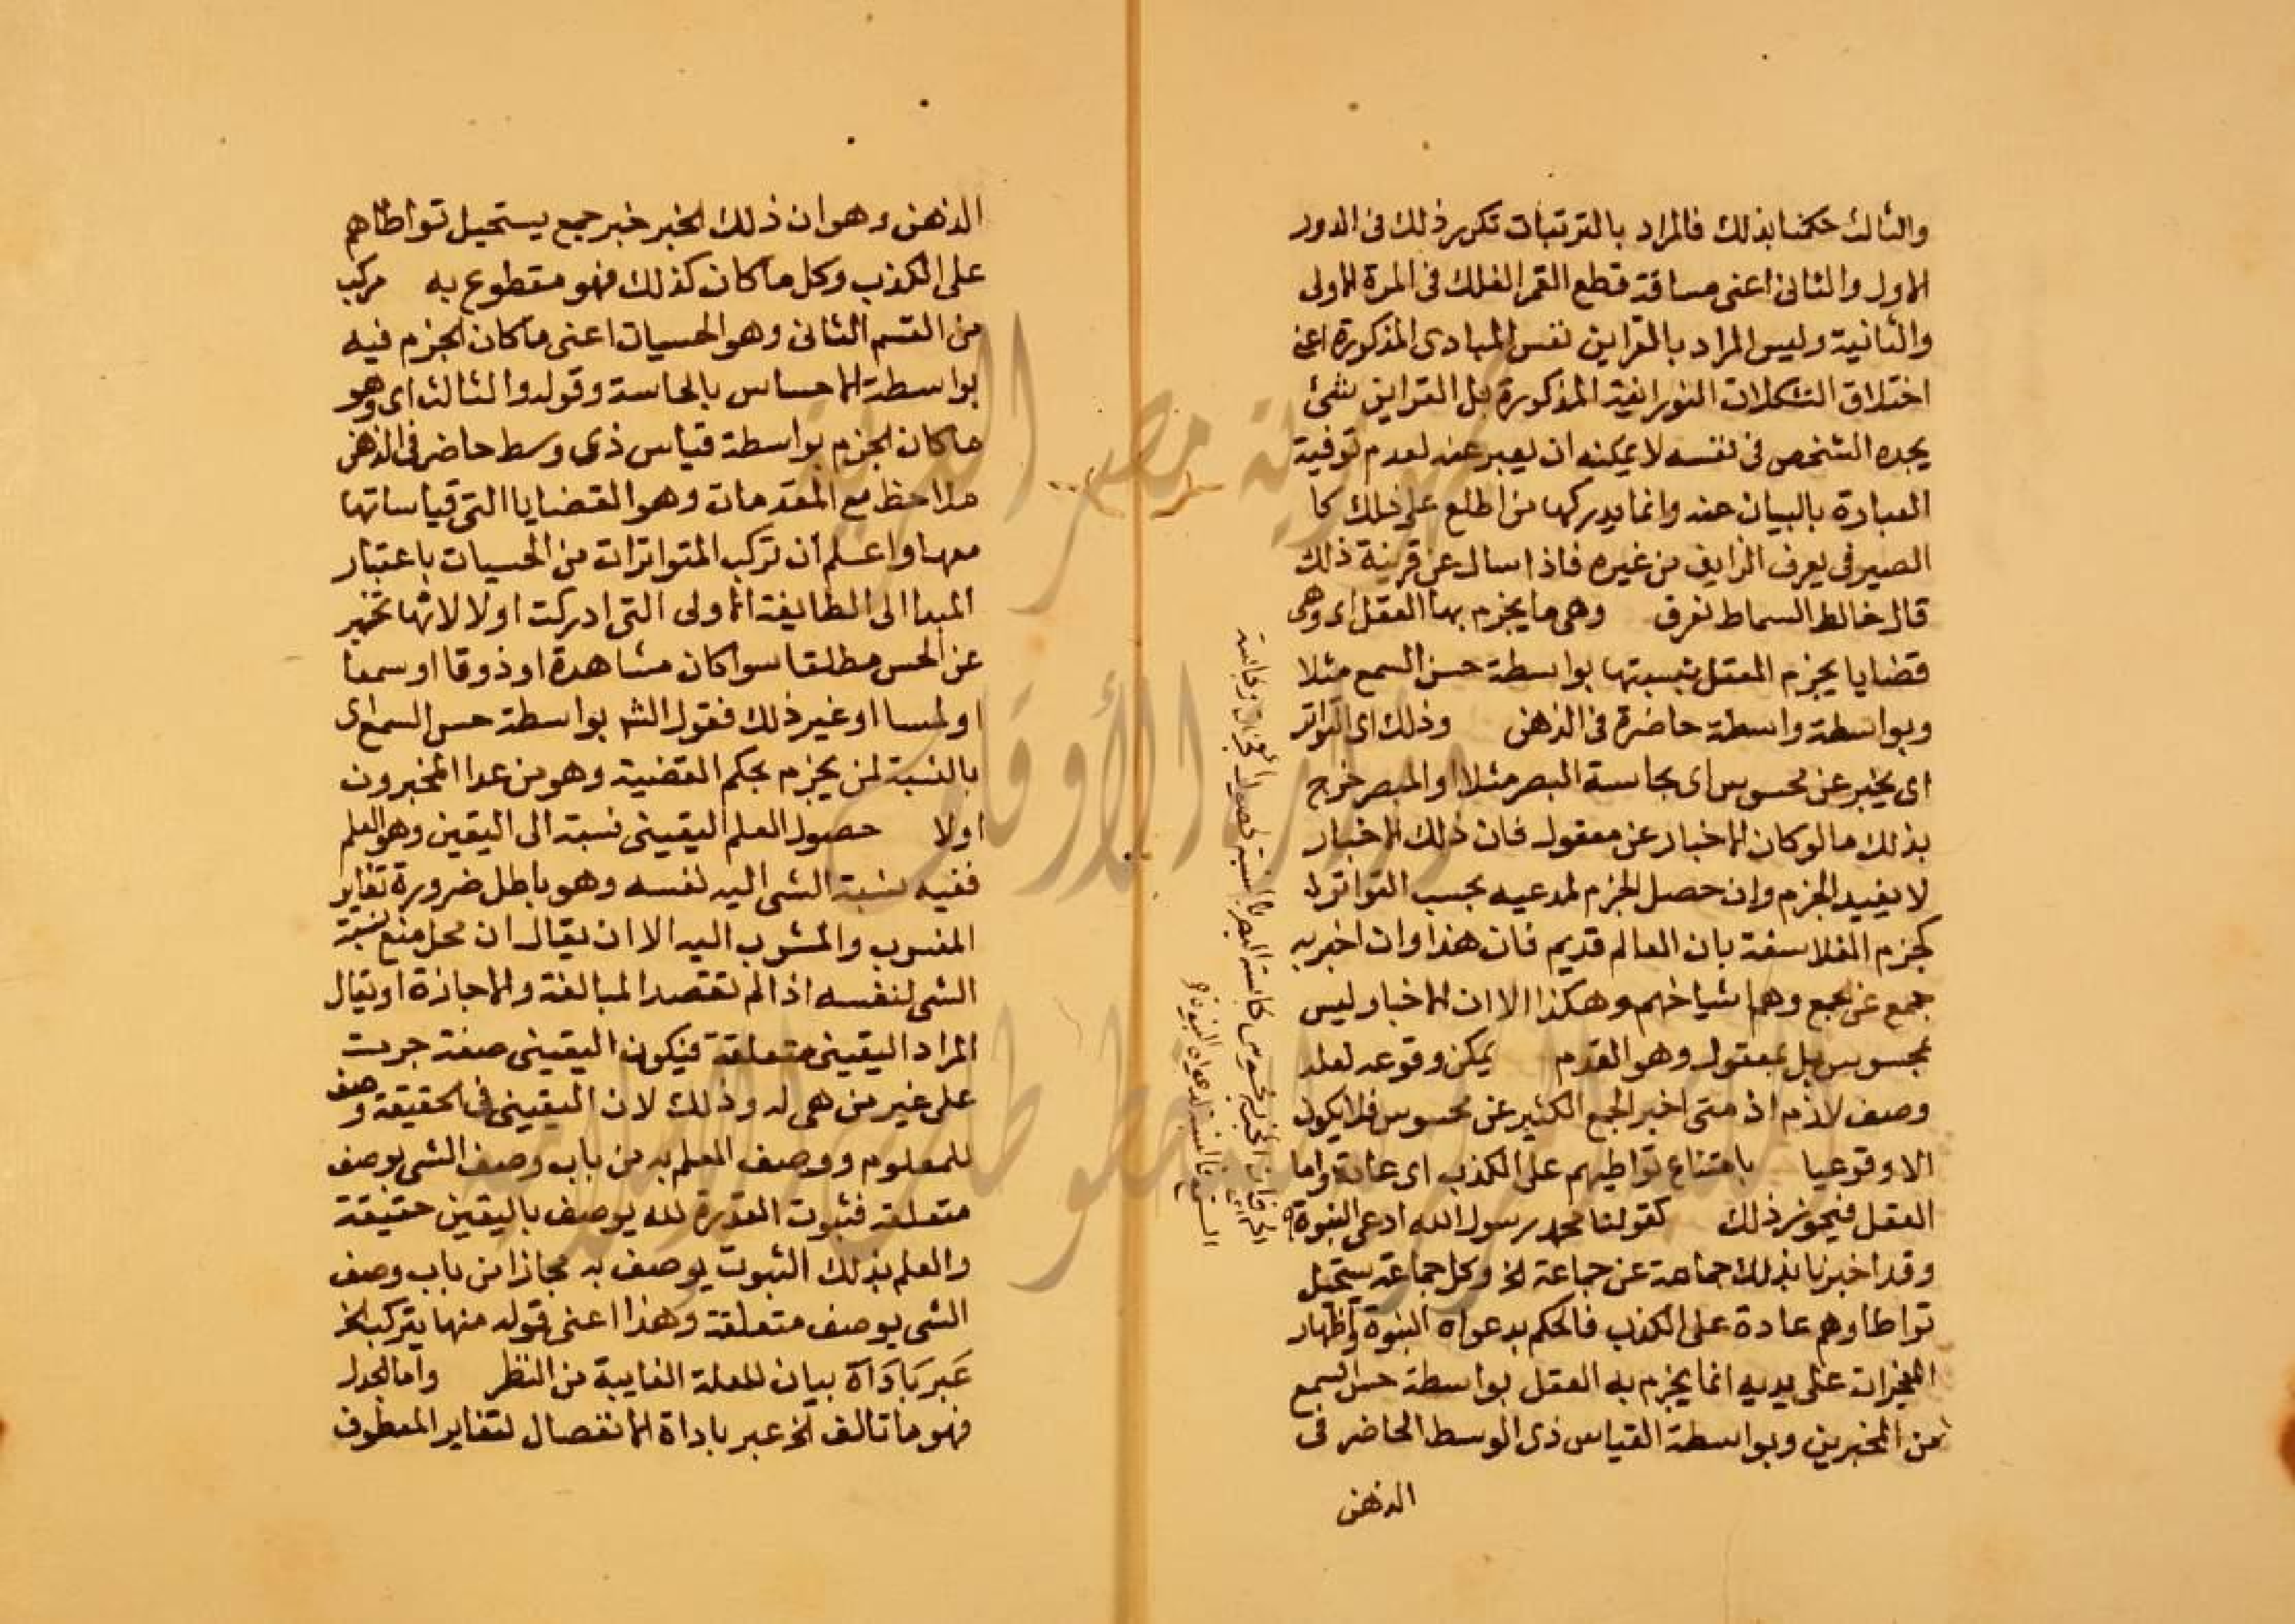 والثالث حكمنا بذلك فالمراد بالترتبات تكرر ذلك فى الدور
الاول والثانى اعنى مسافة قطع القمر الفلك فى المرة الاولى
والثانية وليس المراد بالقراين نفس المبادى المذكورة اعنى
اختلاق التشكلات النورانية المذكورة بل القراين شئ
يجده الشخص فى نفسه لا يمكنه ان يعبر عنه لعدم توفية
العبارة بالبيان عنه وانما يدركها من اطلع على ذلك كما
الصيرفى يعرف الزايف من غيره فاذا سال عن قرينة ذلك
قال خالط السماط تعرف وهى ما يجزم بها العقل اى وهى
قضايا يجزم العقل بنسبتها بواسطة حس السمع مثلا
وبواسطة واسطة حاضرة فى الذهن وذلك اى التواتر
اى يخبر عن محسوس اى بحاسة البصر مثلا او المبصر خرج
بذلك ما لو كان الاخبار عن معقول فان ذلك الاخبار
لا يفيد الجزم وان حصل الجزم لمدعيه بحسب التواتر لا
كجزم الفلاسفة بان العالم قديم فان هذا وان اخبر به
جمع عن جمع وهم اشياخهم وهكذا الا ان الاخبار ليس
بمحسوس بل بمعقول وهو القدم يمكن وقوعه لعله
وصف لازم اذ متى اخبر الجمع الكثير عن محسوس فلا يكون
الا وقوعيا بامتناع تواطيهم على الكذب اى عادة واما
العقل فيجوز ذلك كقولنا محمد رسول الله ادعى النبوة
وقد اخبرنا بذلك جماعة عن جماعة الخ وكل جماعة يستحيل
تواطاوهم عادة على الكذب فالحكم بدعواه النبوة واظهار
المعجزات على يديه انما يجزم به العقل بواسطة حس السمع
من المخبرين وبواسطة القياس ذى الوسط الحاضر فى
الذهن
الذهن وهو ان ذلك الخبر خبر جمع يستحيل تواطاهم
على الكذب وكل ما كان كذلك فهو مقطوع به مركب
من القسم الثانى وهو الحسيات اعنى ما كان الجزم فيه
بواسطة الاحساس بالحاسة وقوله والثالث اى وهو
ما كان الجزم بواسطة قياس ذى وسط حاضر فى الذهن
ملاحظ مع المقدمات وهو القضايا التى قياساتها
معها واعلم ان تركب المتواترات من الحسيات باعتبار
المبدا الى الطايفة الاولى التى ادركت اولا لانها تخبر
عن الحس مطلقا سوا كان مشاهدة او ذوقا او سمعا
او لمسا او غير ذلك فقول الش بواسطة حس السمع اى
بالنسبة لمن يجزم بحكم القضية وهو من عدا المخبرون
اولا حصول العلم اليقينى نسبة الى اليقين وهو العلم
ففيه نسبة الشى اليه نفسه وهو باطل ضرورة تغاير
المنسوب والمنسوب اليه الا ان يقال ان محل منع نسبة
الشى لنفسه اذا لم تقصد المبالغة والا جازة او يقال
المراد اليقينى متعلقة فيكون اليقينى صفة جرت
على غير من هى له وذلك لان اليقينى فى الحقيقة وصف
للمعلوم ووصف العلم به من باب وصف الشى بوصف
متعلقه فثبوت القدرة لله يوصف باليقين حقيقة
والعلم بذلك الثبوت يوصف به مجازا من باب وصف
الشى بوصف متعلقة وهذا اعنى قوله منها يتركب الخ
عَبر بَادَاة بيان للعلة الغايية من النظر واما الجدل
فهو ما تالف الخ عبر باداة الانفصال لتغاير المعطوف